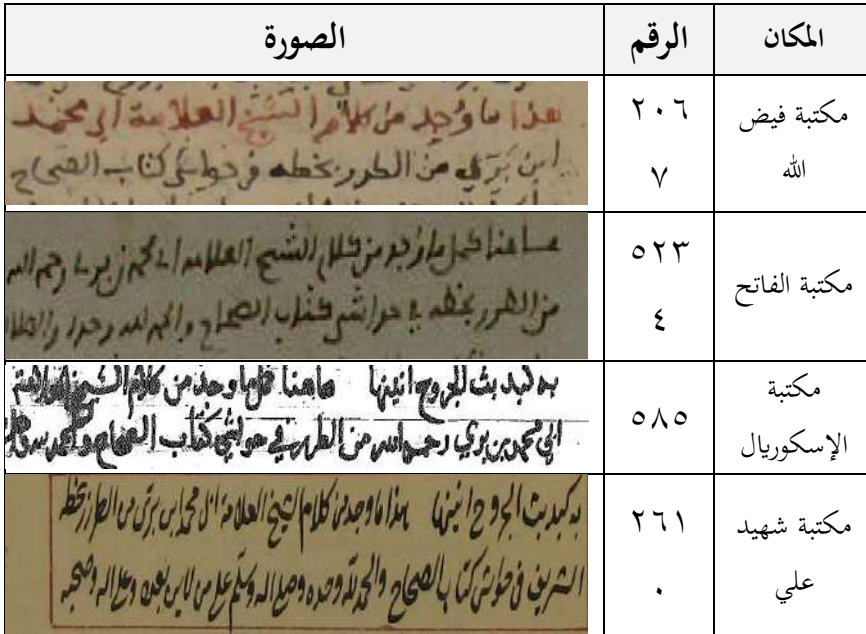 المكان الرقم الصورة
مكتبة فيض الله
٢٠٦
٧
هذا ما وُجِد من كلام الشيخ العلامة أبي محمد
ابن بَرّي من الطرر بخطه في حواشي كتاب الصحاح
مكتبة الفاتح
٥٢٣
٤
هاهنا كمل ما وُجد من كلام الشيخ العلامه ابي محمد بن بري رحمه الله
من الطرر بخطه في حواشي كتاب الصحاح والحمد لله وحده والصلا
مكتبة
الإسكوريال
٥٨٥
به لبد بث الجروح انينها هاهنا كمل ما وجد من كلام الشيخ العلامة
ابي محمد بن بري رحمه الله من الطرر في حواشي كتاب الصحاح والحمد لله
مكتبة شهيد
علي
٢٦١
٠
به كبد بث الجروح انينها هذا ما وجد من كلام الشيخ العلامة ابى محمد ابن برّى من الطرر بخطه
الشريف فى حواشى كتاب الصحاح والحمد لله وحده وصلى الله وسلم على من لا نبى بعده وعلى اله وصحبه